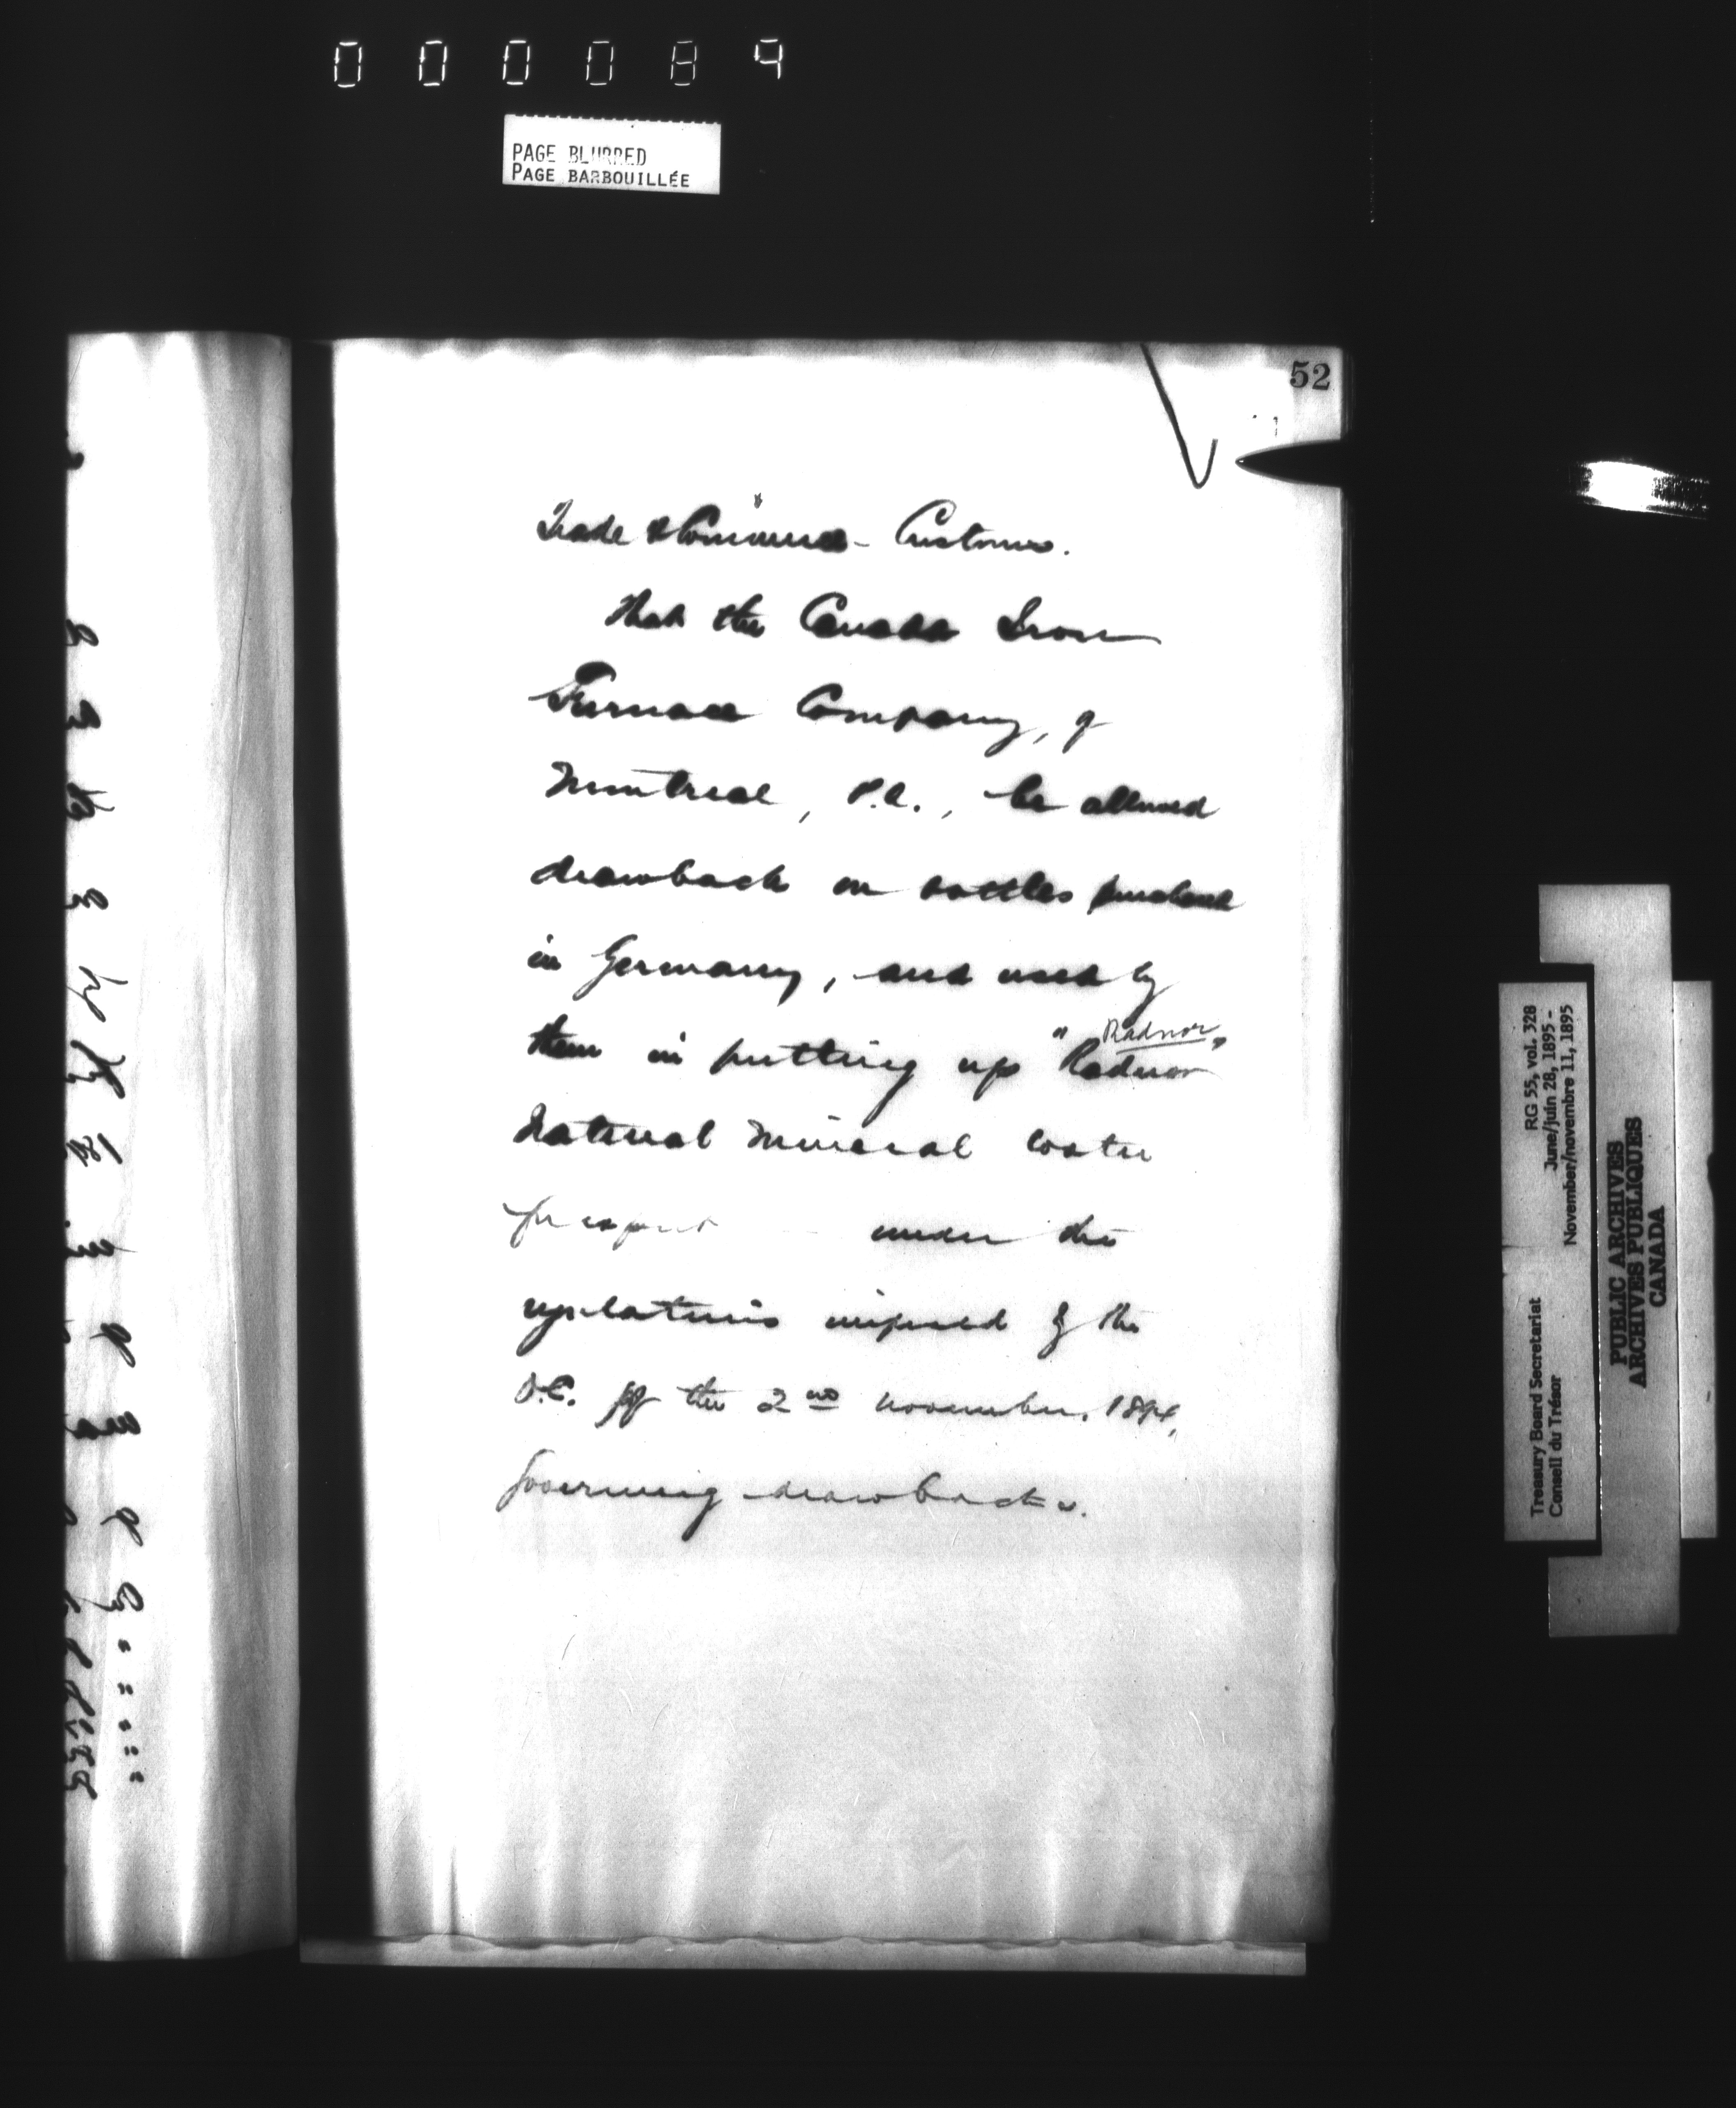 000084
PAGE BLURRED
PAGE BARBOUILLÉE
52
Trade & Commerce - Customs.
That the Canada Iron
Furnace Company, of
Montreal, P.Q., be allowed
drawback on bottles purchased
in Germany, and used by
Radnor
them in putting up "Radnor"
Natural Mineral Water
for export under the
regulations imposed by the
O.C. of the 2nd November, 1894,
governing drawbacks.
RG 55, vol. 328
June/juin 28, 1895 -
November/novembre 11, 1895
Treasury Board Secretariat
Conseil du Trésor
PUBLIC ARCHIVES
ARCHIVES PUBLIQUES
CANADA